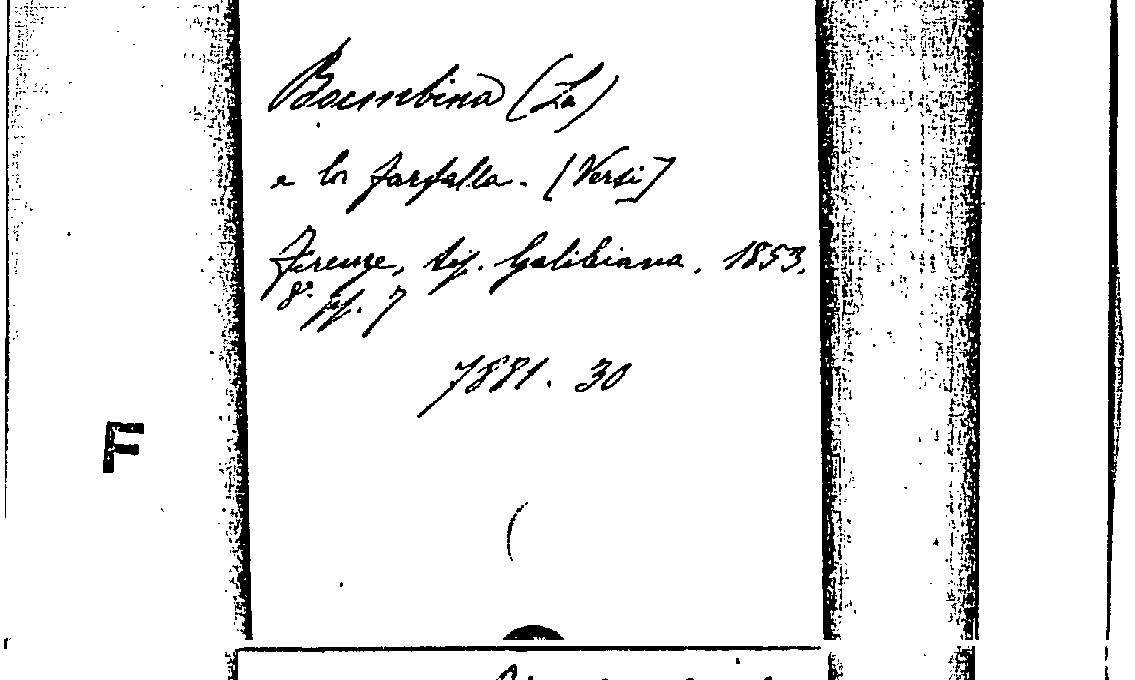 Bambina (La)
e la farfalla. [Versi]
Firenze, tip. Galileiana, 1853.
8° pp. 7
7881. 30
F